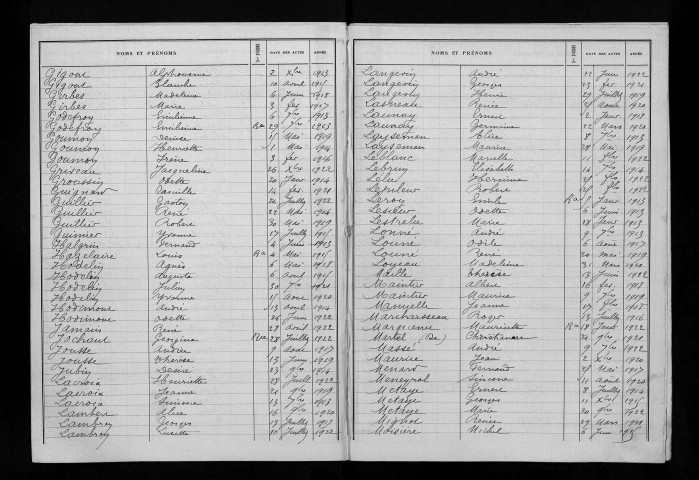 NOMS ET PRÉNOMS DATE DES ACTES ANNÉE
Gigout Alphonsine 2 Xbre 1913
Gigout Blanche 10 Avril 1915
Girbes Madeleine 6 Juin 1918
Girbes Marie 3 fev 1917
Godefroy Emilienne 6 7bre 1913
Godefroy Emilienne Ra 29 7bre 1903
Goumon Denise Mai 1909
Goumoy Henriette 1 Mai 1914
Goumoy Irène 3 fev 1916
Griseau Jacqueline 26 Xbre 1922
Groussin Odette 20 Janv 1914
Guignard Camille 14 fev 1921
Guillier Gaston 24 Juillet 1922
Guillier René 22 Mai 1914
Guillier Robert 30 Mai 1919
Guimier Yvonne 17 Juillet 1915
Halgrin Fernand 4 Juin 1913
Hazelaire Louis Ra 4 Mai 1915
Hodelin Agnès 6 Mai 1915
Hodelin Auguste 6 Avril 1915
Hodelin Julien 30 7bre 1921
Hodelin Yvonne 15 Aout 1920
Hodimont André 13 Avril 1914
Hodimont Odette 26 Juin 1922
Jamain René 28 Avril 1922
Jochaut Georgina Rec 28 Juillet 1922
Jousse André 9 Aout 1917
Jousse Thérèse 13 Juin 1919
Jubin Désiré 23 9bre 1914
Lacroix Henriette 28 Juill 1922
Lacroix Jeanne 21 9bre 1919
Lacroix Simone 13 7bre 1918
Lambert Alice 16 9bre 1920
Lambrey Georges 13 Juillet 1917
Lambrey Lucette 10 Juillet 1922
NOMS ET PRÉNOMS DATE DES ACTES ANNÉE
Langevin André 22 Juin 1922
Langevin Georges 27 fev 1921
Langevin Henri 29 Juillet 1919
Lastreau Renée Aout 1920
Launay Ernest 2 Janv 1918
Laundry Germaine 22 Mars 1920
Layseman Alice 8 7bre 1913
Layseman Maurice 28 Mai 1919
Leblanc Marcelle 11 9bre 1922
Lebrun Elisabeth 14 7bre 1914
Lelu Herminie 1922
Lepileur Robert 1922
Leroy Emile Ra 1 Janv 1913
Lesieur Odette 6 Juin 1915
Lestrelie Marie 28 Janv 1913
Lonné André 9 7bre 1913
Lonné Odile 6 Aout 1917
Lonné René 20 Mai 1919
Loyeau Madeleine 31 Mars 1920
Maille Thérèse 13 Juin 1922
Maintier Albert 16 fev 1915
Maintier Maurice 9 7bre 1919
Manuelle Jeanne 1918
Marchaisseau Roger 13 Juillet 1916
Margienne Mauricette Ra 18 Janv 1922
Martel (De) Christianne 20 9bre 1921
Massé André 9bre 1922
Maurice Jean 2 Xbre 1920
Menard Fernand Mai 1917
Meneyrol Simone 11 Aout 1920
Metaye Ernest 8 Juillet 1914
Metaye Georges 11 Xbre 1915
Metaye Marie 20 9bre 1922
Mignot Renée 29 Mars 1920
Moisière Michel 6 Juin 1915